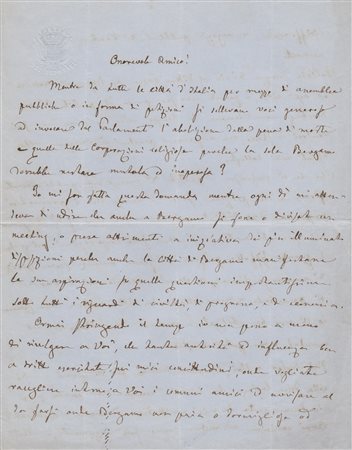 Onorevole Amico!
Mentre da tutte le città d'Italia per mezzo di assemblee
pubbliche o in forma di petizioni si sollevano voci generose
ad invocare dal Parlamento l'abolizione della pena di morte
e quella delle Corporazioni religiose perché la sola Bergamo
dovrebbe restare muta ed inoperosa?
Io mi son fatta questa domanda mentre ogni dì mi atten-
deva di udire che anche a Bergamo si fosse deciso un
meeting, o presa altrimenti a iniziativa dei più illuminati
perché anche la città di Bergamo manifestasse
le sue aspirazioni su quelle questioni importantissime
sotto tutti i riguardi di civiltà, di progresso, e di economia.
Ormai stringendo il tempo io non penso a meno
di rivolgermi a Voi, che tanta autorità ed influenza
a dritto esercitate sui miei concittadini, onde vogliate
raccogliere intorno a Voi i comuni amici ed avvisare al
da farsi onde Bergamo non paia o